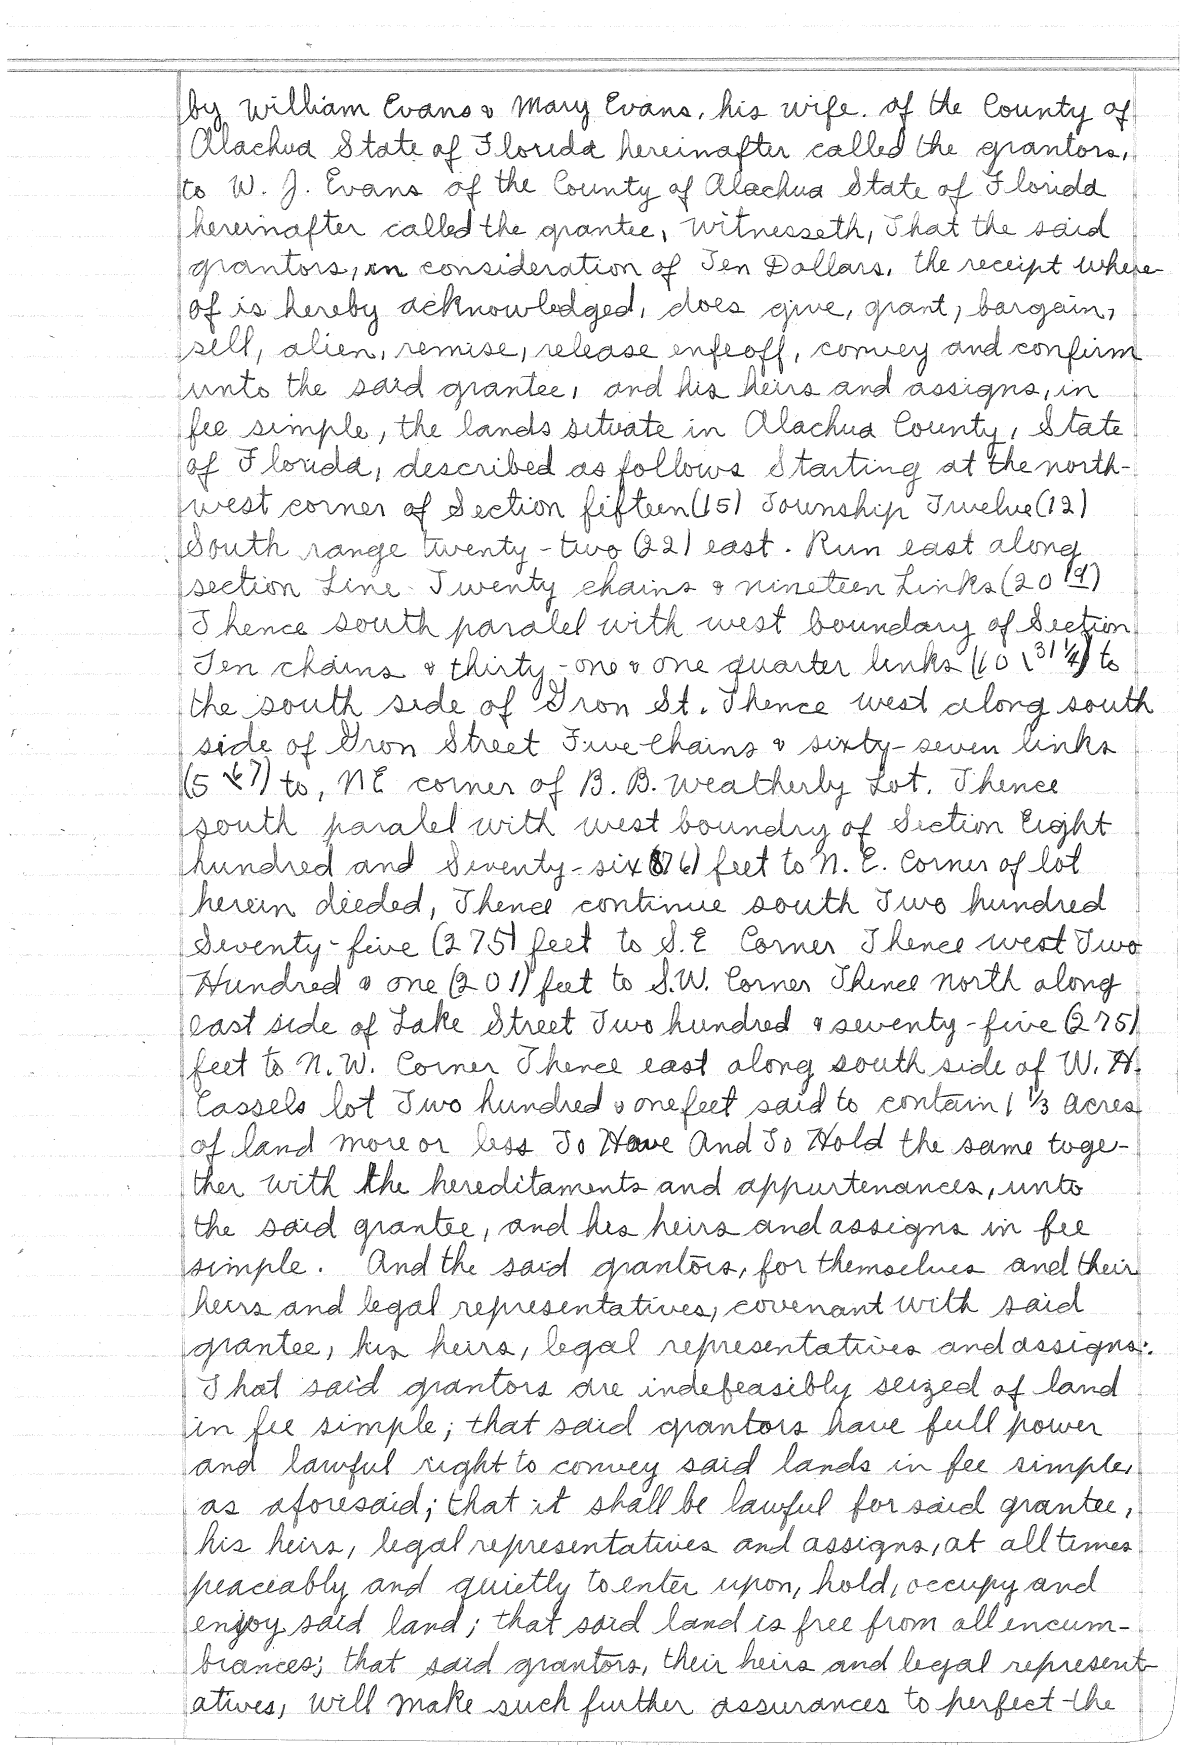 by William Evans & Mary Evans, his wife. of the County of
Alachua State of Florida hereinafter called the grantors,
to W. J. Evans of the County of Alachua State of Florida
hereinafter called the grantee, Witnesseth, That the said
grantors, in consideration of Ten Dollars, the receipt where-
of is hereby acknowledged, does give, grant, bargain,
sell, alien, remise, release enfeoff, convey and confirm
unto the said grantee, and his heirs and assigns, in
fee simple, the lands situate in Alachua County, State
of Florida, described as follows Starting at the north-
west corner of Section fifteen (15) Township Twelve (12)
South range twenty-two (22) east. Run east along
section Line Twenty chains & nineteen Links (20 19)
Thence south paralel with west boundary of Section
Ten chains & thirty-one & one quarter links (10 31 1/4) to
the south side of Iron St. Thence west along south
side of Iron Street Five Chains & sixty-seven links
(5 67) to, NE corner of B. B. Weatherly Lot. Thence
south paralel with west boundry of Section Eight
hundred and Seventy-six (876) feet to N. E. Corner of lot
herein deeded, Thence continue south Two hundred
Seventy-five (275) feet to S.E Corner Thence west Two
Hundred & one (201) feet to S.W. Corner Thence North along
east side of Lake Street Two hundred & seventy-five (275)
feet to N.W. Corner Thence east along south side of W. H.
Cassels lot Two hundred & one feet said to contain 1 1/3 acres
of land more or less To Have And To Hold the same toge-
ther with the hereditaments and appurtenances, unto
the said grantee, and his heirs and assigns in fee
simple. And the said grantors, for themselves and their
heirs and legal representatives, covenant with said
grantee, his heirs, legal representatives and assigns:
That said grantors are indefeasibly seized of land
in fee simple; that said grantors have full power
and lawful right to convey said lands in fee simple,
as aforesaid; that it shall be lawful for said grantee,
his heirs, legal representatives and assigns, at all times
peaceably and quietly to enter upon, hold, occupy and
enjoy said land; that said land is free from all encum-
brances; that said grantors, their heirs and legal represent-
atives, will make such further assurances to perfect the